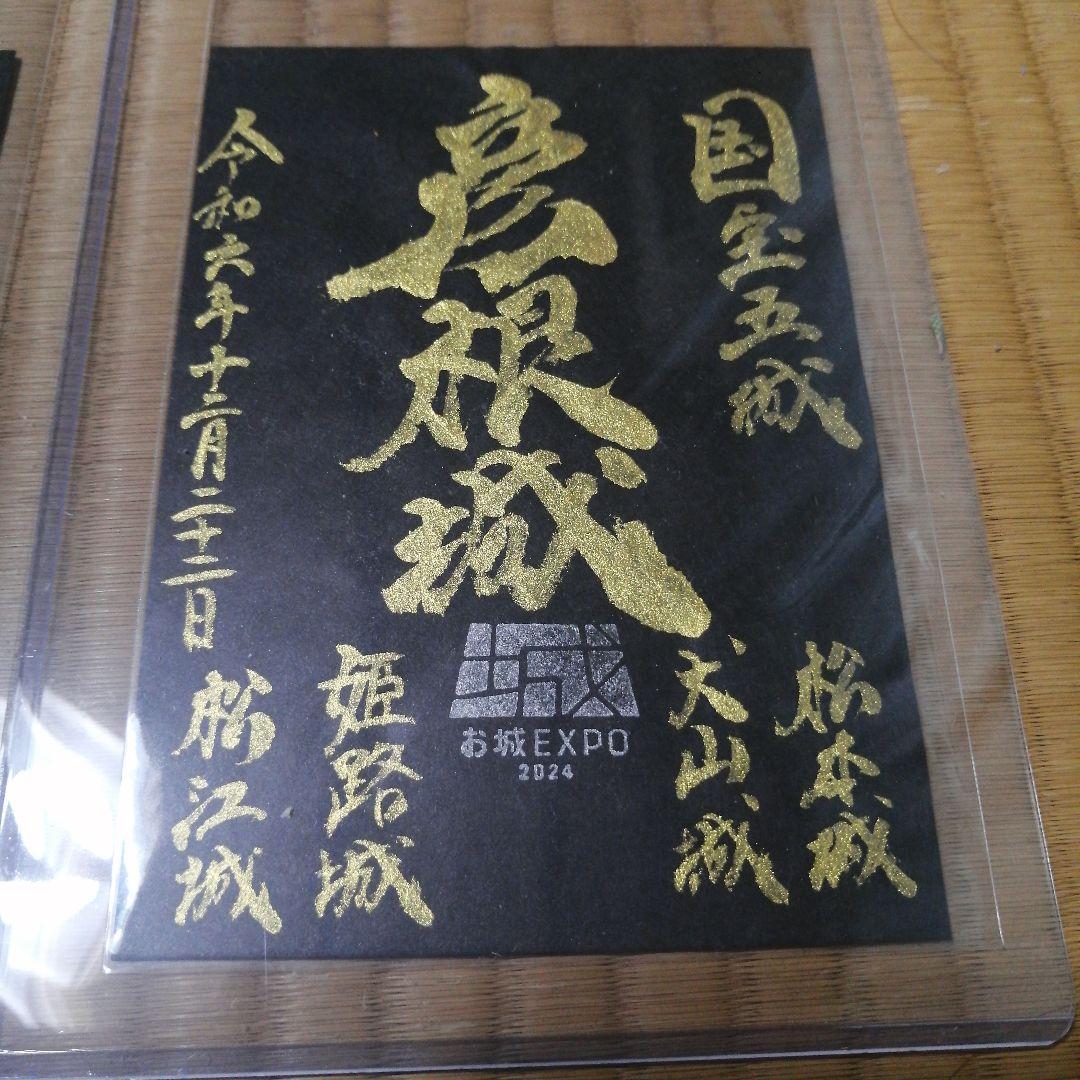 国宝五城
彦根城
令和六年十二月二十二日
松本城
犬山城
城
お城EXPO
2024
姫路城
松江城